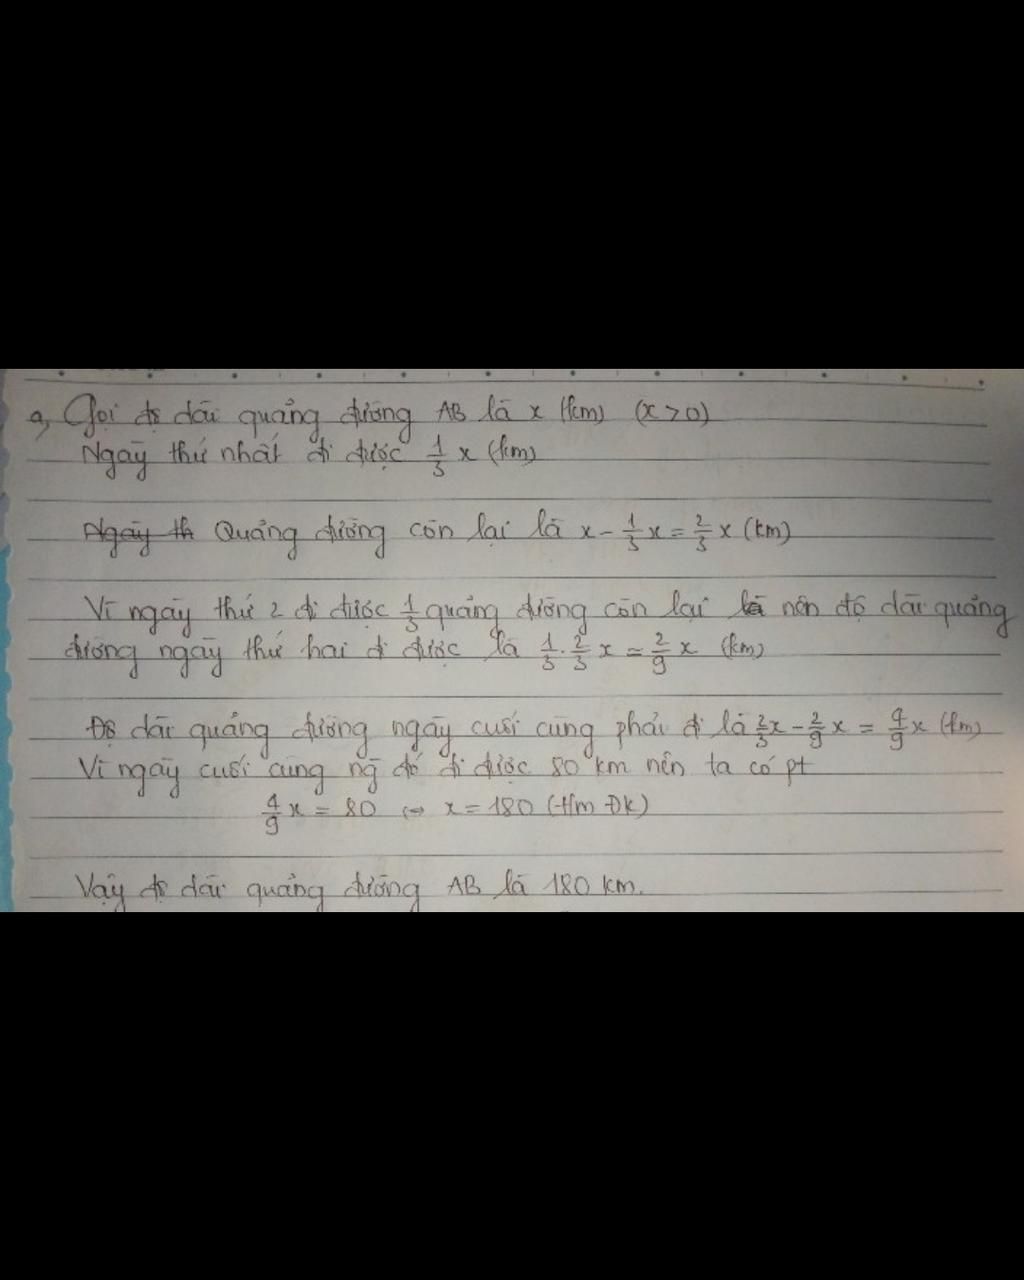 a, Gọi độ dài quảng đường AB là x (km) (x > 0)
Ngày thứ nhất đi được 1/3 x (km)
Ngày th Quảng đường còn lại là x - 1/3 x = 2/3 x (km)
Vì ngày thứ 2 đi được 1/3 quảng đường còn lại là nên độ dài quảng
đường ngày thứ hai đi được là 1/3 . 2/3 x = 2/9 x (km)
Độ dài quảng đường ngày cuối cùng phải đi là 2/3 x - 2/9 x = 4/9 x (km)
Vì ngày cuối cùng ng đó đi được 80 km nên ta có pt
4/9 x = 80 ⇔ x = 180 (t/m ĐK)
Vậy độ dài quảng đường AB là 180 km.